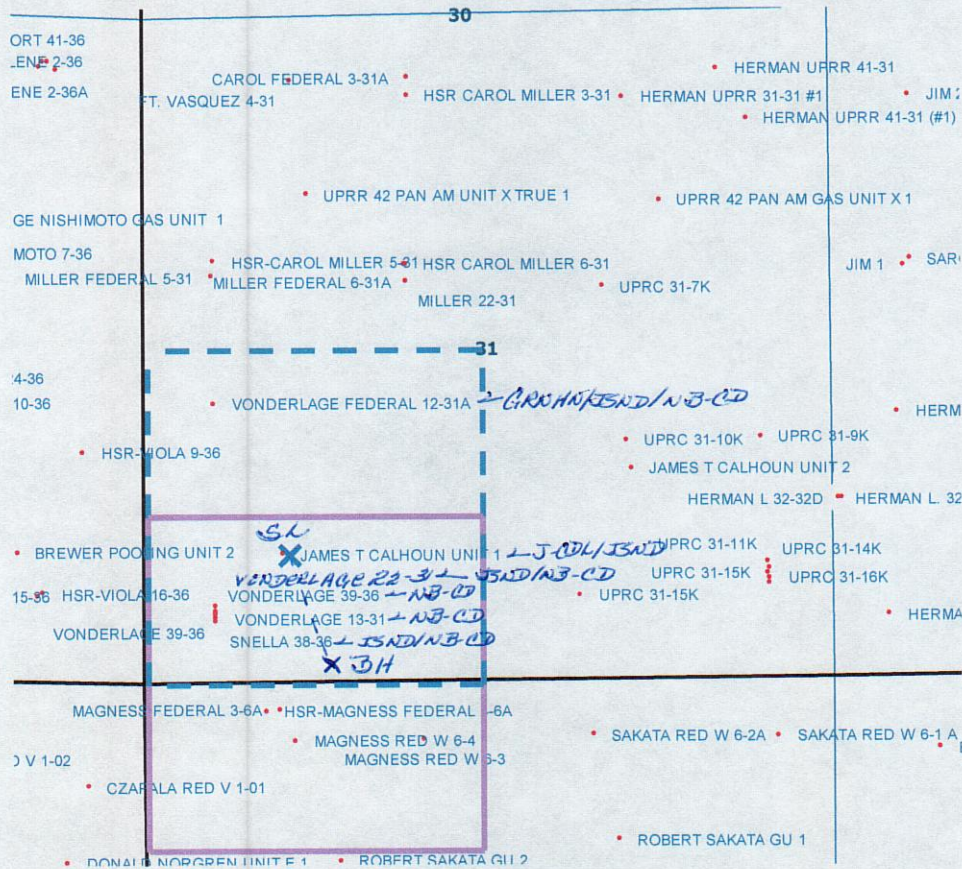 30
ORT 41-36
ENE 2-36
ENE 2-36A
CAROL FEDERAL 3-31A
FT. VASQUEZ 4-31
HSR CAROL MILLER 3-31
HERMAN UPRR 41-31
HERMAN UPRR 31-31 #1
JIM
HERMAN UPRR 41-31 (#1)
UPRR 42 PAN AM UNIT X TRUE 1
UPRR 42 PAN AM GAS UNIT X 1
GE NISHIMOTO GAS UNIT 1
MOTO 7-36
HSR-CAROL MILLER 5-31
HSR CAROL MILLER 6-31
JIM 1
SAR
MILLER FEDERAL 5-31
MILLER FEDERAL 6-31A
UPRC 31-7K
MILLER 22-31
31
4-36
10-36
VONDERLAGE FEDERAL 12-31A GRNHN/JSND/NB-CD
HERM
UPRC 31-10K
UPRC 31-9K
HSR-VIOLA 9-36
JAMES T CALHOUN UNIT 2
HERMAN L 32-32D
HERMAN L. 32
SL
BREWER POOLING UNIT 2
X JAMES T CALHOUN UNIT 1 J-CDL/JSND
UPRC 31-11K
UPRC 31-14K
VONDERLAGE 22-31 JSND/NB-CD
UPRC 31-15K
UPRC 31-16K
15-36
HSR-VIOLA 16-36
VONDERLAGE 39-36 NB-CD
UPRC 31-15K
VONDERLAGE 13-31 NB-CD
HERMA
VONDERLAGE 39-36
SNELLA 38-36 JSND/NB-CD
X BH
MAGNESS FEDERAL 3-6A
HSR-MAGNESS FEDERAL -6A
MAGNESS RED W 6-4
SAKATA RED W 6-2A
SAKATA RED W 6-1 A
V 1-02
MAGNESS RED W 6-3
CZAPALA RED V 1-01
ROBERT SAKATA GU 1
DONALD NORGREN UNIT F 1
ROBERT SAKATA GU 2